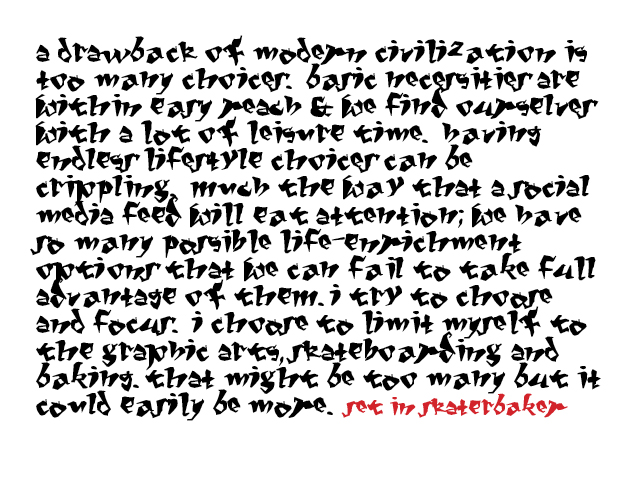 a drawback of modern civilization is
too many choices. basic necessities are
within easy reach & we find ourselves
with a lot of leisure time. having
endless lifestyle choices can be
crippling, much the way that a social
media feed will eat attention; we have
so many possible life-enrichment
options that we can fail to take full
advantage of them. i try to choose
and focus. i choose to limit myself to
the graphic arts, skateboarding and
baking. that might be too many but it
could easily be more. set in skaterbaker